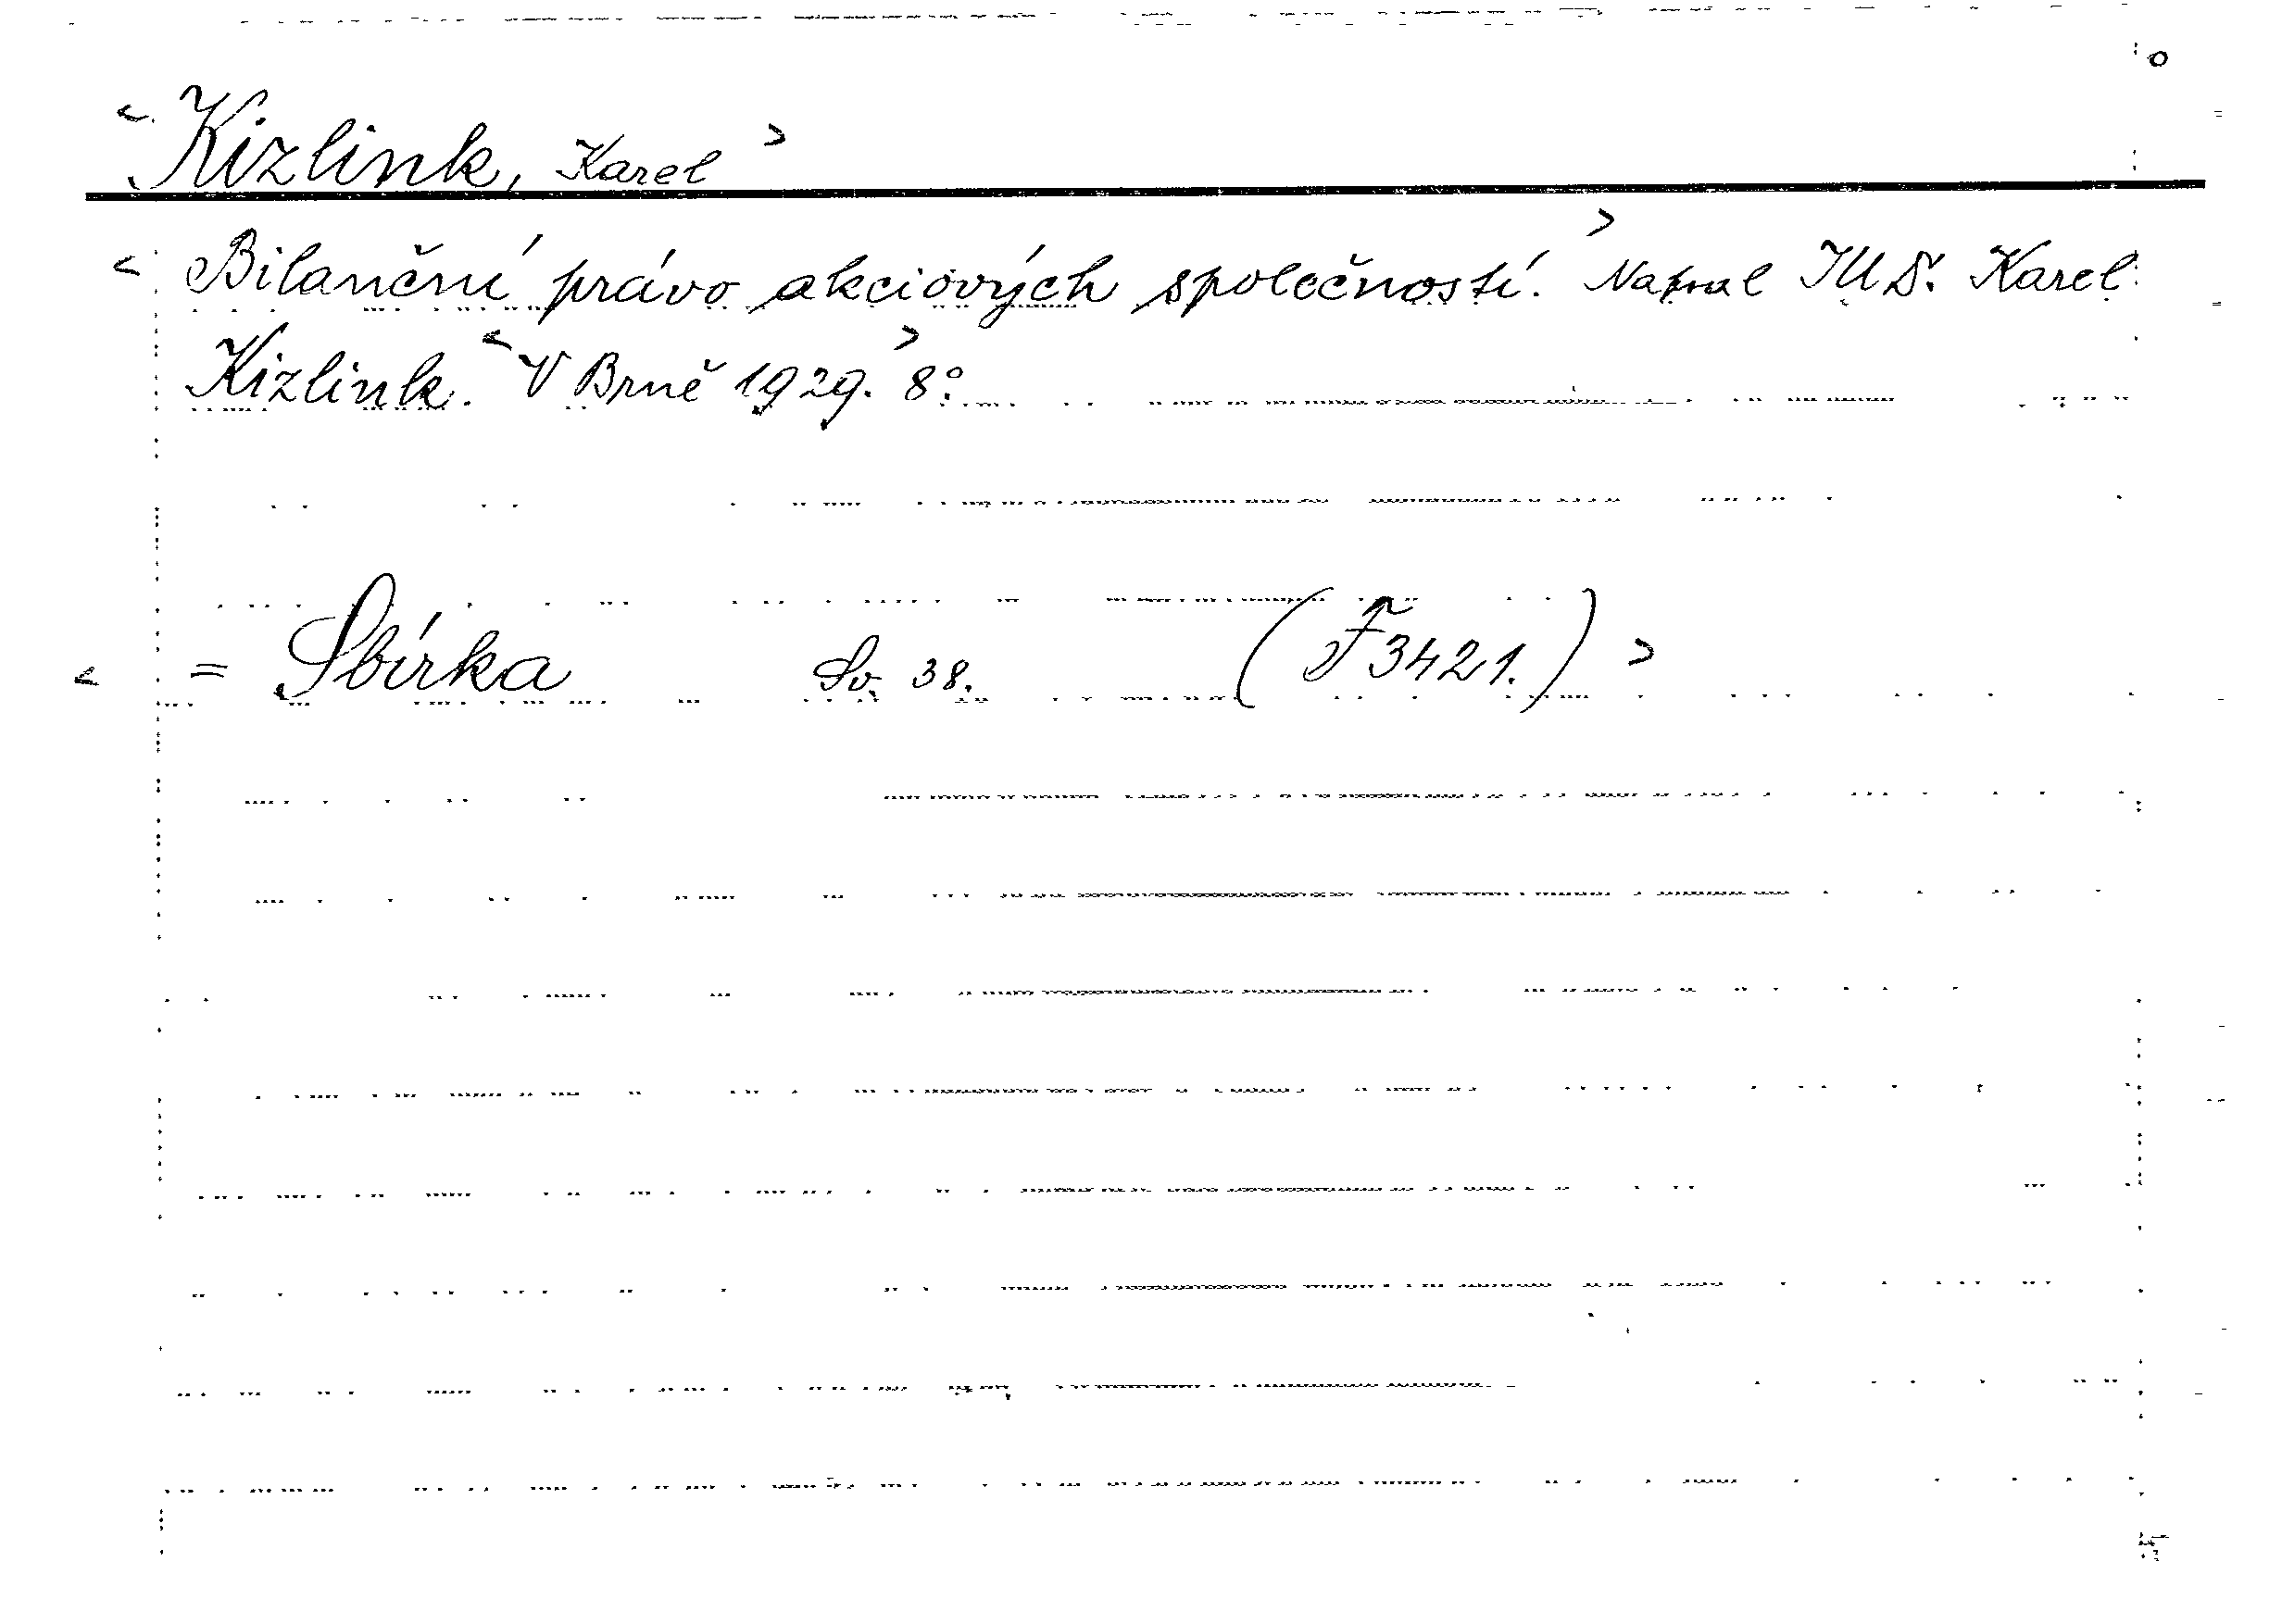 o
< Kizlink, Karel >
< Bilanční právo akciových společností. > Napsal JUDr. Karel
Kizlink. < V Brně 1929. > 8°.
< = Sbírka Sv. 38. (F 3421.) >